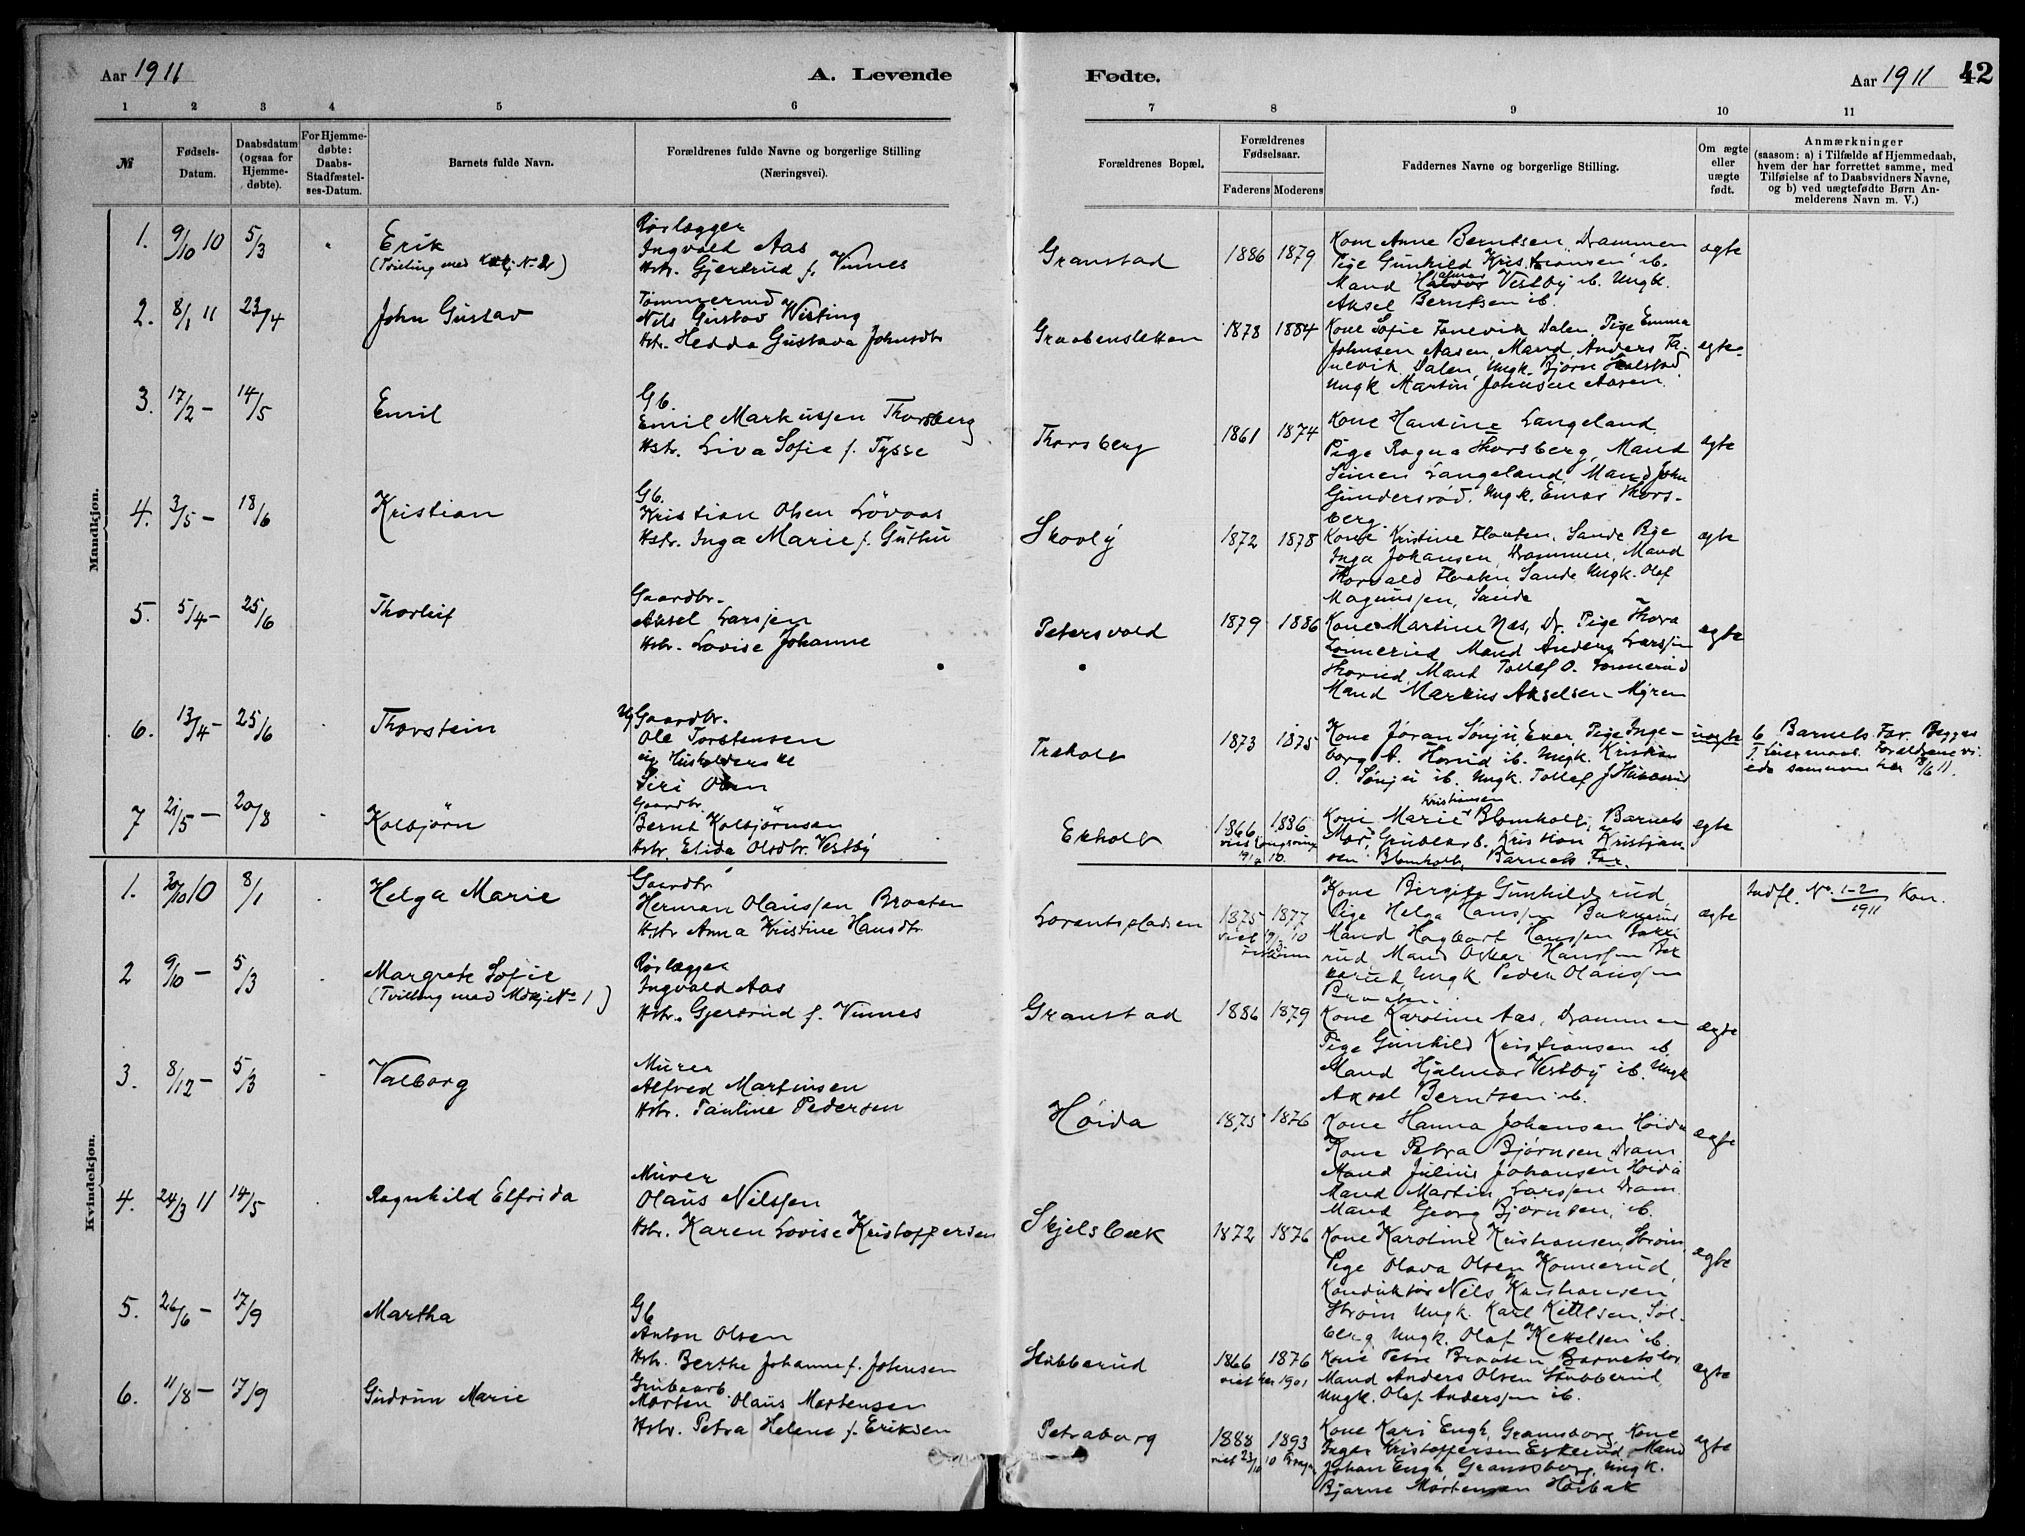 Aar 1911
A. Levende
Fødte.
Aar 1911
42
1 2 3 4 5 6 7 8 9 10 11
№
Fødsels-
Datum.
Daabsdatum
(ogsaa for
Hjemme-
døbte).
For Hjemme-
døbte:
Daabs-
Stadfæstel-
ses-Datum.
Barnets fulde Navn.
Forældrenes fulde Navne og borgerlige Stilling
(Næringsvei).
Forældrenes Bopæl.
Forældrenes
Fødselsaar.
Faderens Moderens
Faddernes Navne og borgerlige Stilling.
Om ægte
eller
uægte
født.
Anmærkninger
(saasom: a) i Tilfælde af Hjemmedaab,
hvem der har forrettet samme, med
Tilføielse af to Daabsvidners Navne,
og b) ved uægtefødte Børn An-
melderens Navn m. V.)
Mandkjøn.
1. 9/10 10 5/3 Erik
(Tvilling med No 2)
Rørlægger
Ingvald Aas
Hstr. Gjertrud f. Vinnes
Granstad 1886 1879
Kone Anne Berntsen, Drammen
Pige Gunhild Kristiansen ib.
Mand Hjalmar Vestby ib. Ungk.
Aksel Berntsen ib.
ægte
2. 8/1 11 23/4 John Gustav
Tømmermd
Nils Gustav Wisting
Hstr. Hedda Gustava Johnsdtr
Graabensletten 1878 1884
Kone Sofie Tanevik Dalen, Pige Emma
Johnsen Aasen, Mand Anders Ta-
nevik Dalen, Ungk. Bjørn
Ungk Martin Johnsen Aasen.
ægte
3. 17/2 – 14/5 Emil
Gb.
Emil Markussen Thorsberg
Hstr. Liva Sofie f. Tysse
Thorsberg 1861 1874
Kone Hansine Langeland,
Pige Ragna Thorsberg, Mand
Simen Langeland, Mand John
Gundersrød, Ungk. Einar Thors-
berg.
ægte
4. 3/5 – 18/6 Kristian
Gb.
Kristian Olsen Løvaas
Hstr. Inga Marie f. Guthu
Skovly 1872 1878
Kone Kristine Flaaten, Sande Pige
Inga Johansen, Drammen, Mand
Thorvald Flaaten, Sande Ungk. Olaf
Magnussen, Sande
ægte
5. 5/4 – 25/6 Thorleif
Gaardbr.
Aksel Larssen
Hstr. Lovise Johanne
Petersvold 1879 1886
Kone Martine Næs, Dr. Pige Thora
Mand Anders Larssen
Mand Tollef O.
Mand Markus Akselsen Myren
ægte
6. 13/4 – 25/6 Thorstein
Ug Gaardbr.
Ole Torstensen
ug Husholderske
Siri Olsen
Træholt 1873 1875
Kone Jøran Sønju Eker Pige Inge-
borg A. Horrid ib. Ungk. Kristian
O. Sønju ib. Ungk. Tollef J.
uægte
b Barnets Far. Begges
1. Leiermaal. Forældrene vi-
ede sammen her 18/6 11.
7 21/5 – 20/8 Kolbjørn
Gaardbr.
Bernt Kolbjørnsen
Hstr. Elida Olsdtr. Vestby
Ekholt 1866 1886
Kristiansen
Kone Marie Blomholt, Barnets
Mor, Grubearb. Kristian Kristian-
sen Blomholt, Barnets Far.
ægte
Kvindekjøn.
1. 30/10 10 8/1 Helga Marie
Gaardbr
Herman Olaussen Braaten
Hstr Anna Kristine Hansdtr.
Lorentspladsen 1875 1877
Kone Birgitte Gunhildsrud,
Pige Helga Hanssen Bakkerud
Mand Hagbart Hanssen Bakke
rud Mand Oskar Hanssen Bak
kerud, Ungk Peder Olaussen
Braaten.
ægte
Indfl. No. 1–2/1911 Kon.
2 9/10 – 5/3 Margrete Sofie
(Tvilling med Mdkj No 1)
Rørlægger
Ingvald Aas
Hstr. Gjertrud f. Vinnes
Granstad 1886 1879
Kone Karoline Aas, Drammen
Pige Gunhild Kristiansen ib.
Mand Hjalmar Vestby ib. Ungk
Aksel Berntsen ib.
ægte
3. 8/12 – 5/3 Valborg
Murer
Alfred Martinsen
Hstr. Pauline Pedersen
Høida 1875 1876
Kone Hanna Johansen Høida
Kone Petra Bjørnsen, Dram
Mand Julius Johansen Høida
Mand Martin Larssen Dram.
Mand Georg Bjørnsen, ib.
ægte
4. 24/3 11 14/5 Ragnhild Elfrida
Murer
Olaus Nilssen
Hstr. Karen Lovise Kristoffersen
Skjelsbæk 1872 1876
Kone Karoline Kristiansen, Strøm
Pige Olava Olsen Konnerud,
Konduktør Nils Kristiansen
Strøm Ungk. Karl Kittlsen, Sol-
berg Ungk. Olaf Kettelsen ib.
ægte
5. 26/6 – 17/9 Martha
Gb
Anton Olsen
Hstr. Berthe Johanne f. Johnsen
Stubberud 1866 1876
viet her 1901
Kone Petra Braaten, Barnets
Mand Anders Olsen Stubberud,
Ungk. Olaf Anderssen ib.
ægte
6. 11/8 – 17/9 Gudrun Marie
Grubearb.
Morten Olaus Mortensen
Hstr. Petra Helene f. Eriksen
Petraborg 1888 1893
Kone Kari Engh, Gramsborg, Kone
Inger Kristoffersen Eskerud, Mand
Johan Engh Gramsborg, Ungk.
Bjarne Mortensen Høibak
ægte